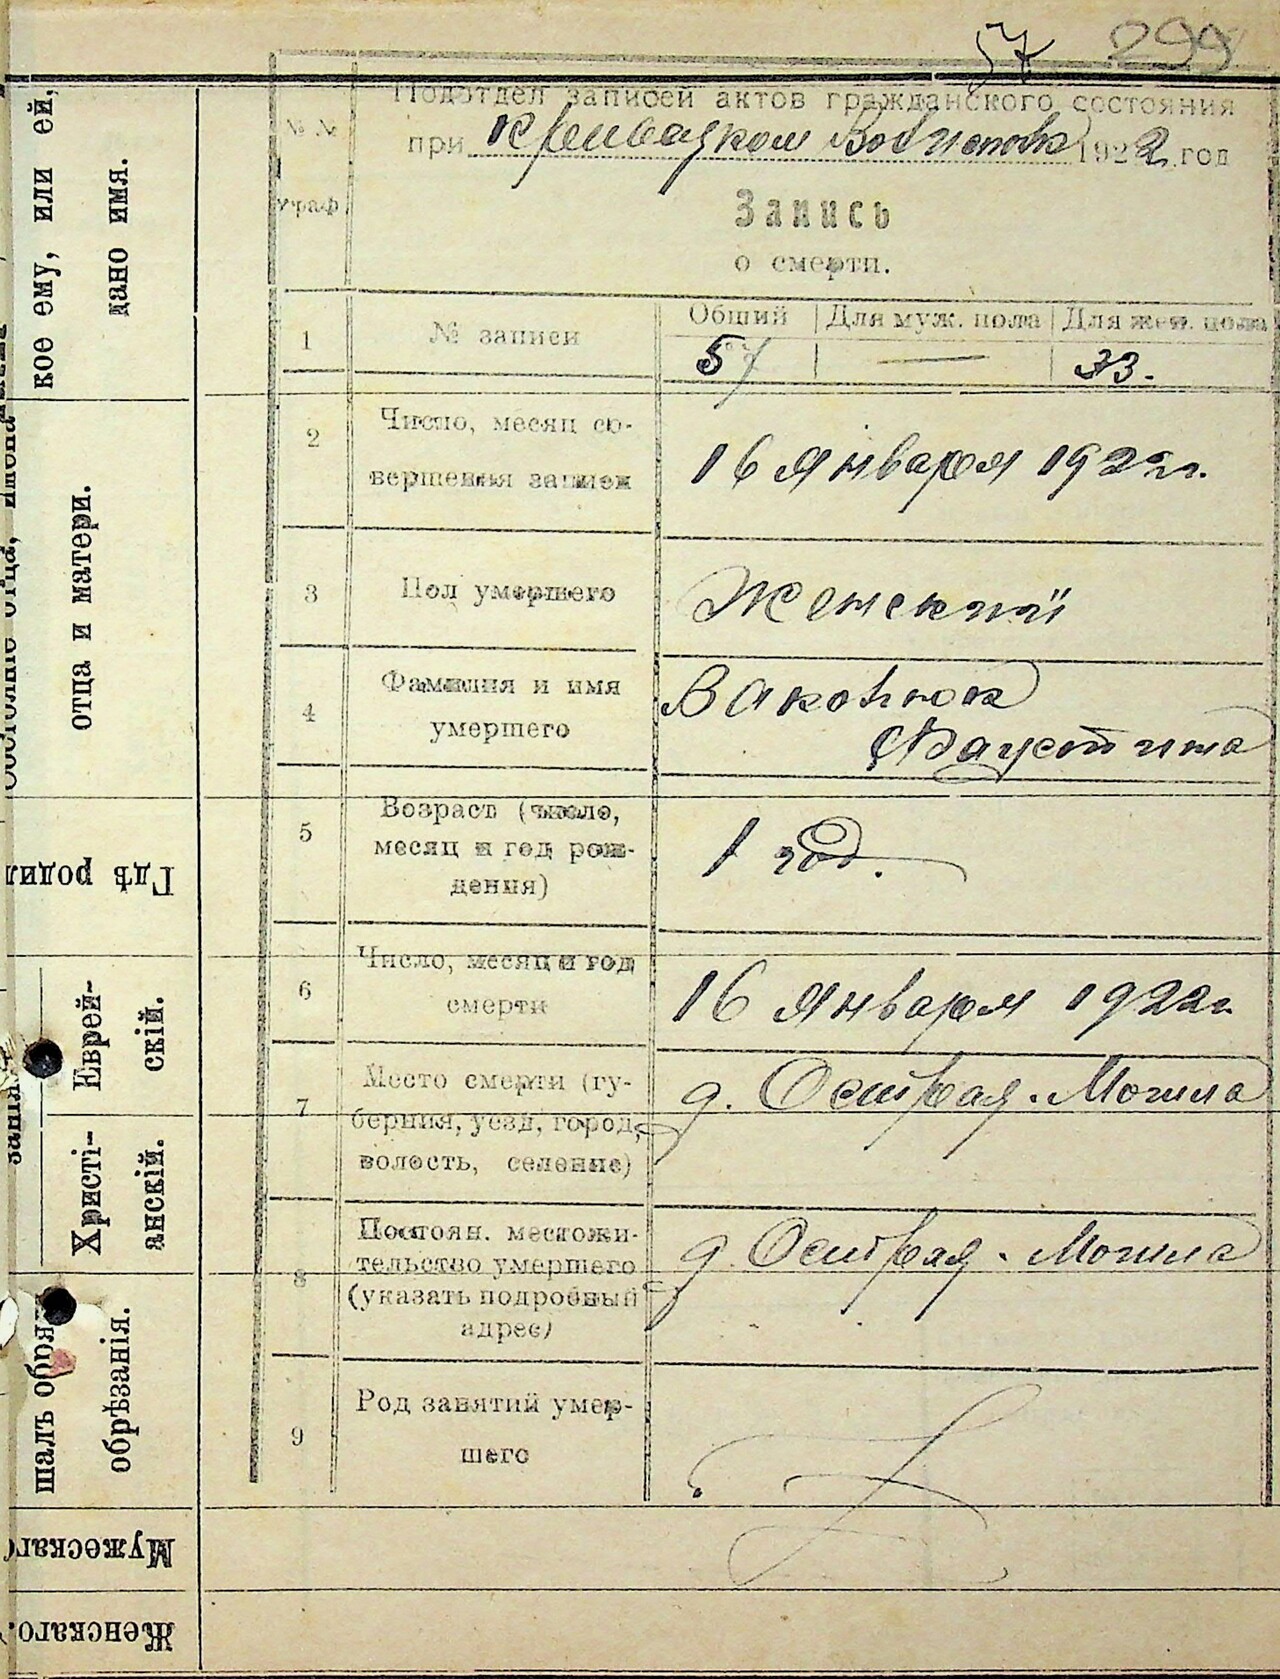 57 299
Подотдел записей актов гражданского состояния
при 1922 год
№ №
граф
Запись
о смерти.
1 № записи Общий Для муж. пола Для жен. пола
57 — 33.
2 Число, месяц со-
вершения записи
16 Января 1922 г.
3 Пол умершего Женский
4 Фамилия и имя
умершего
Ваконюк
Фаустина
5 Возраст (число,
месяц и год рож-
дения)
1 год.
6 Число, месяц и год
смерти
16 Января 1922 г
7 Место смерти (гу-
берния, уезд, город,
волость, селение)
д. Острая-Могила
8 Постоян. местожи-
тельство умершего
(указать подробный
адрес)
д. Острая-Могила
9 Род занятий умер-
шего
кое ему, или ей,
дано имя.
Состояние отца, имена
отца и матери.
Гдѣ родил
Еврей-
скій.
Христі-
анскій.
шалъ обря
обрѣзанія.
Мужескаго
Женскаго.